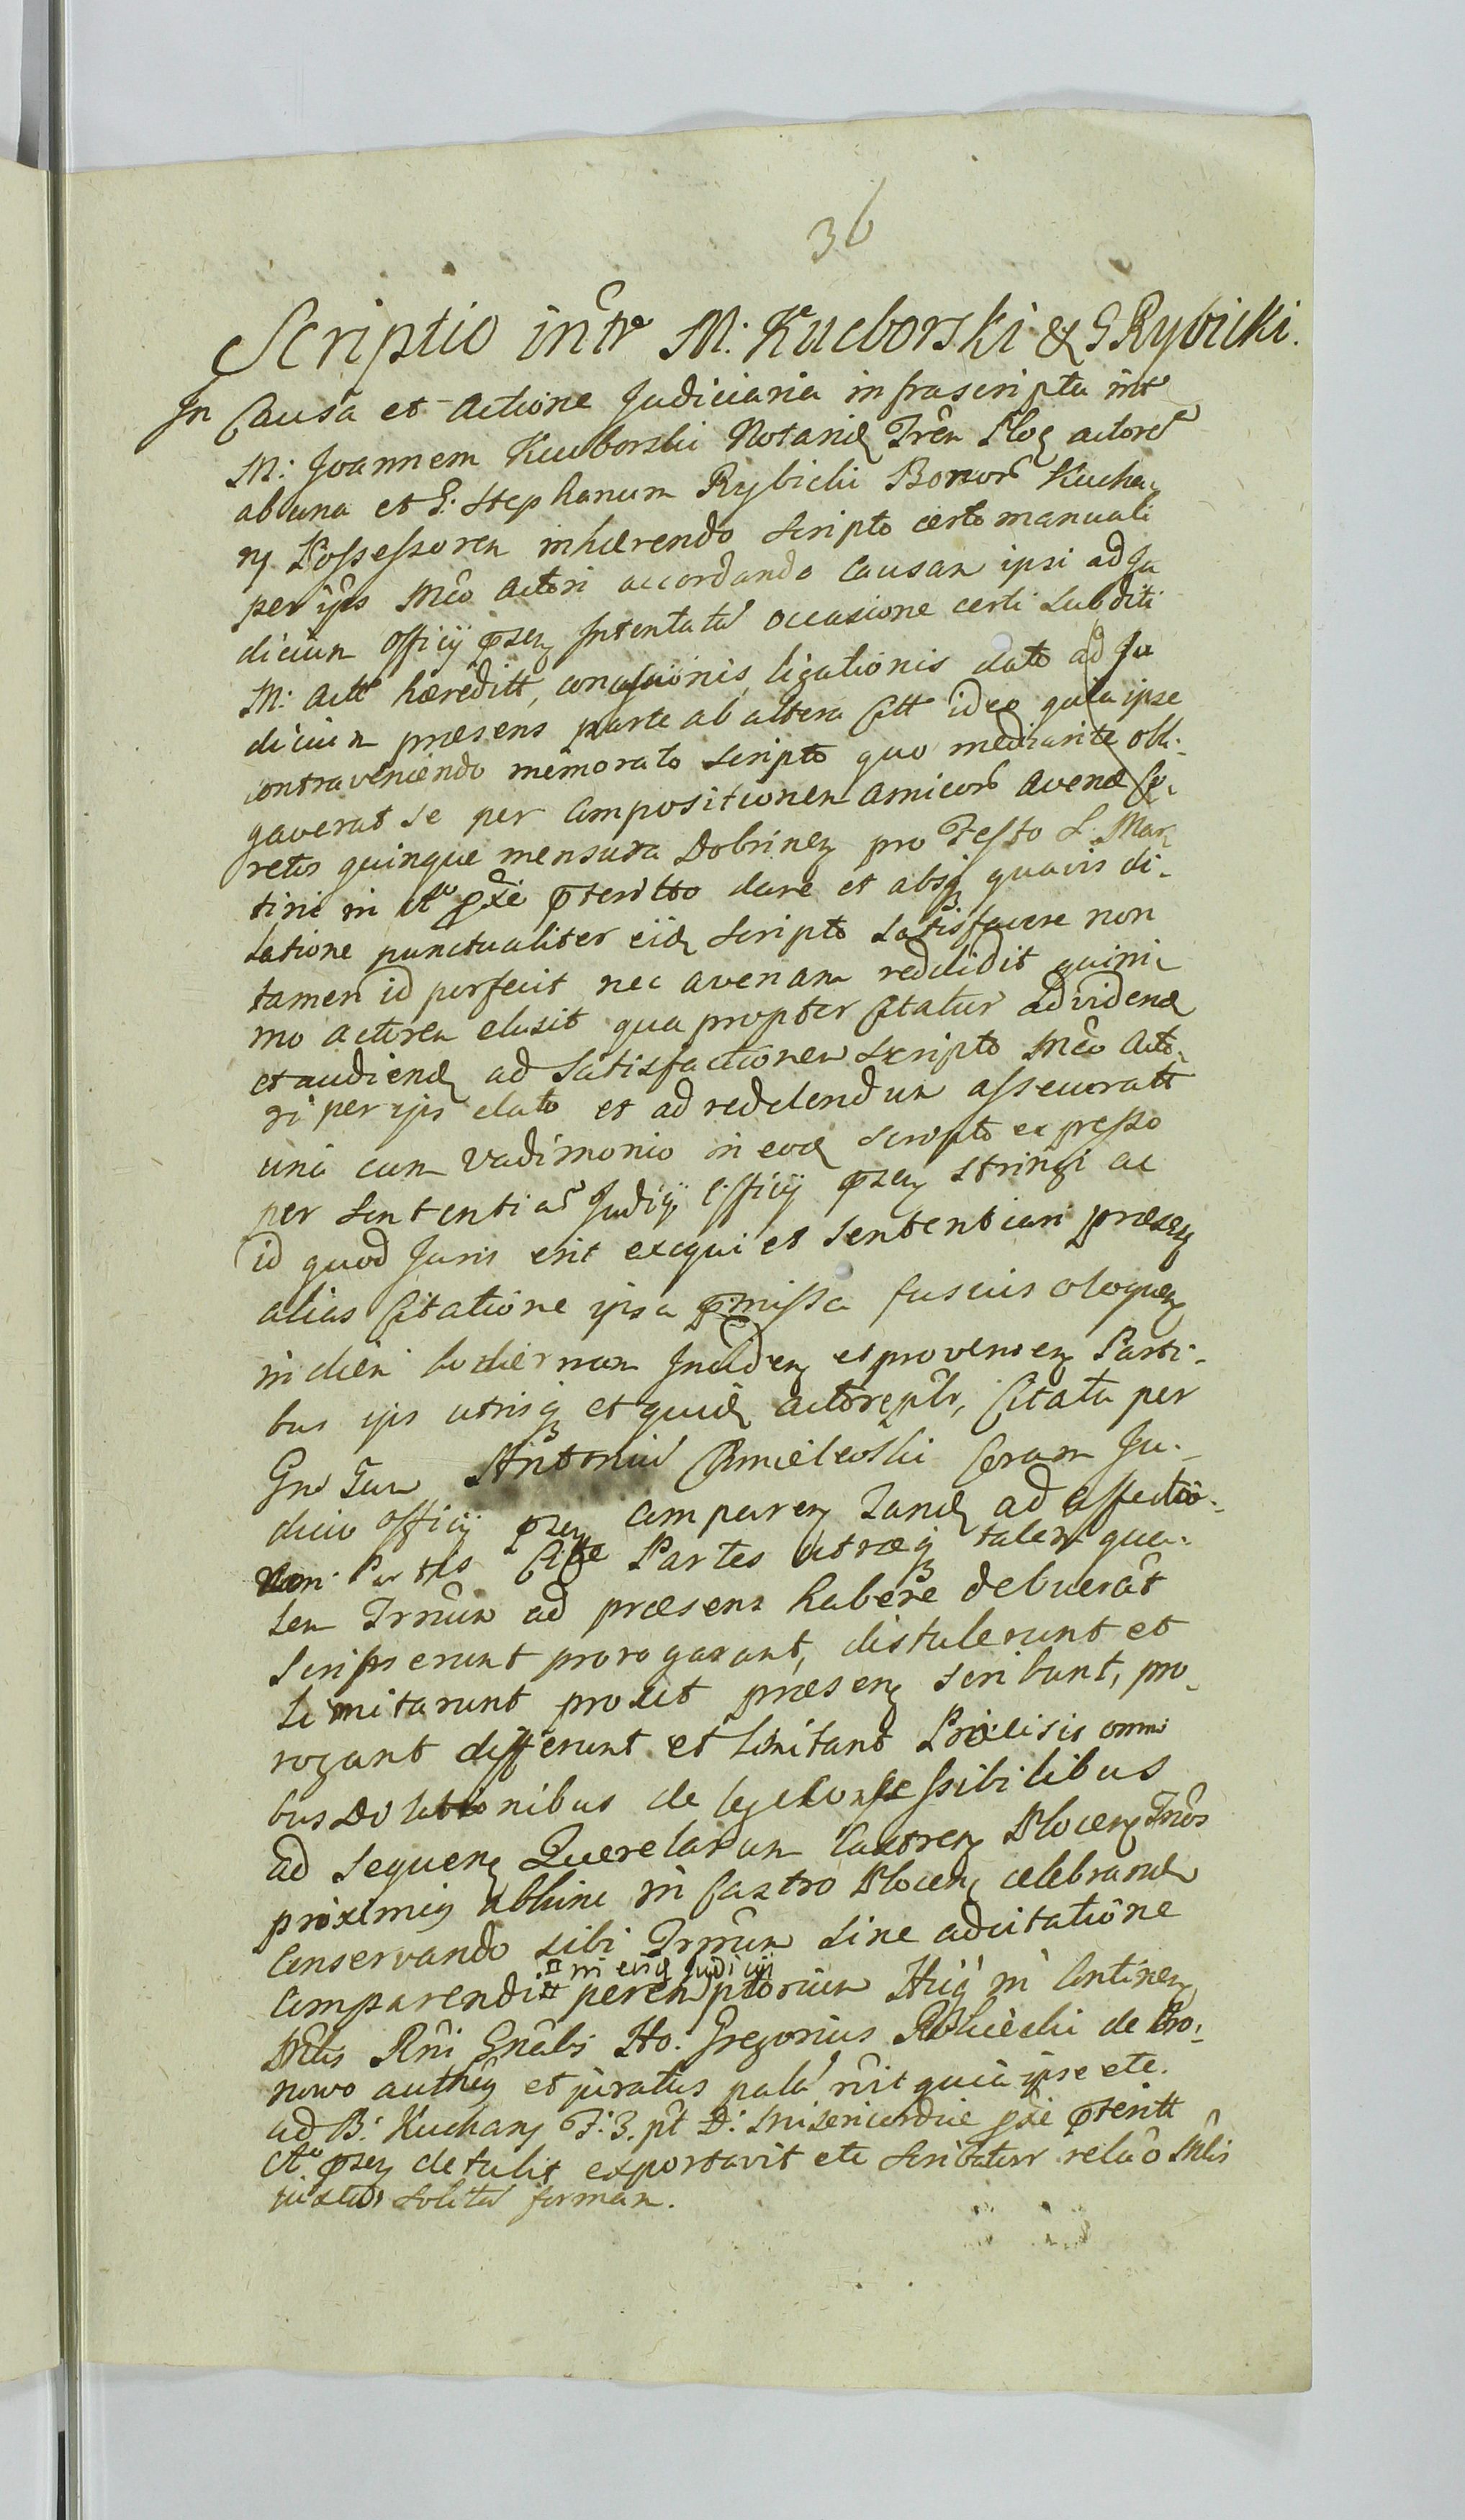 36
Scriptio intr M: Kucborski & G Rybicki.
In Causa et Actione Judiciaria infrascripta intr
M: Joannem Kucborski Notariu Tren Ploc actore
ab una et G. Stephanum Rybicki Bonor Kucha
ry Possessorem inhærendo scripto certo manuali
per ips Mco Actori accordando Causam ipsi ad Ju
dicium Officij prsen Intentata occasione certi subditi
M: Actt hæreditt, ligationis dato ad Ju
dicium præsens parte ab altera Citt ideo quia ipse
contraveniendo memorato scripto quo mediante obli.
gaverat se per Compositionem amicor avenæ Co.
retos quinque mensura Dobrinen pro Festo S. Mar
tini in Ao pxe prterito dare et absq quavis di-
latione punctualiter eid scripto satisfacere non
tamen id perfecit nec avenam reddidit quini
mo actorem elusit qua propter Citatur ad viden
et audien ad satisfactionem scripto Mco Acto
ri per ips dato et ad reddendum assecuratt
una cum Vadimonio in eod scripto expresso
per sententia Judij Officij prsen stringi ac
id quod Juris erit exequi et sententiari præsen
alias Citatione ipsa prmissa fusius eloquen
in diem hodiernam Inciden et provenien Parti-
bus ips utrisq et quid actore plr, Citatu per
Gnr Sum Antoniu Chmielewski Coram Ju-
dicio Officij prsen Comparen Tand ad affectao-
nem Partis Citte Partes utræq talem qua-
lem Trnum ad præsens habere debuerat
scripserunt prorogarunt, distulerunt et
limitarunt prout præsen scribunt, pro-
rogant differunt et limitant Præcisis omni
bus Dilationibus de lege
ad sequen Querelarum Castren Plocen Tnos
proximis abhinc in Castro Plocen celebrand
Conservando sibi Trnum sine adcitatione
# in eisd Judicijs
Comparendi # peremptorium Huiq in Continen
Mtis Rni Gnalis Ho. Gregorius de Bro-
nowo authen et juratus pala rcit quia ipse etc.
ad B: Kuchary F: 3. pt D: Misericordiæ pxe prteritt
Ao prsen detulit exportavit etc scribatur relao Mlis
juxta solita formam.